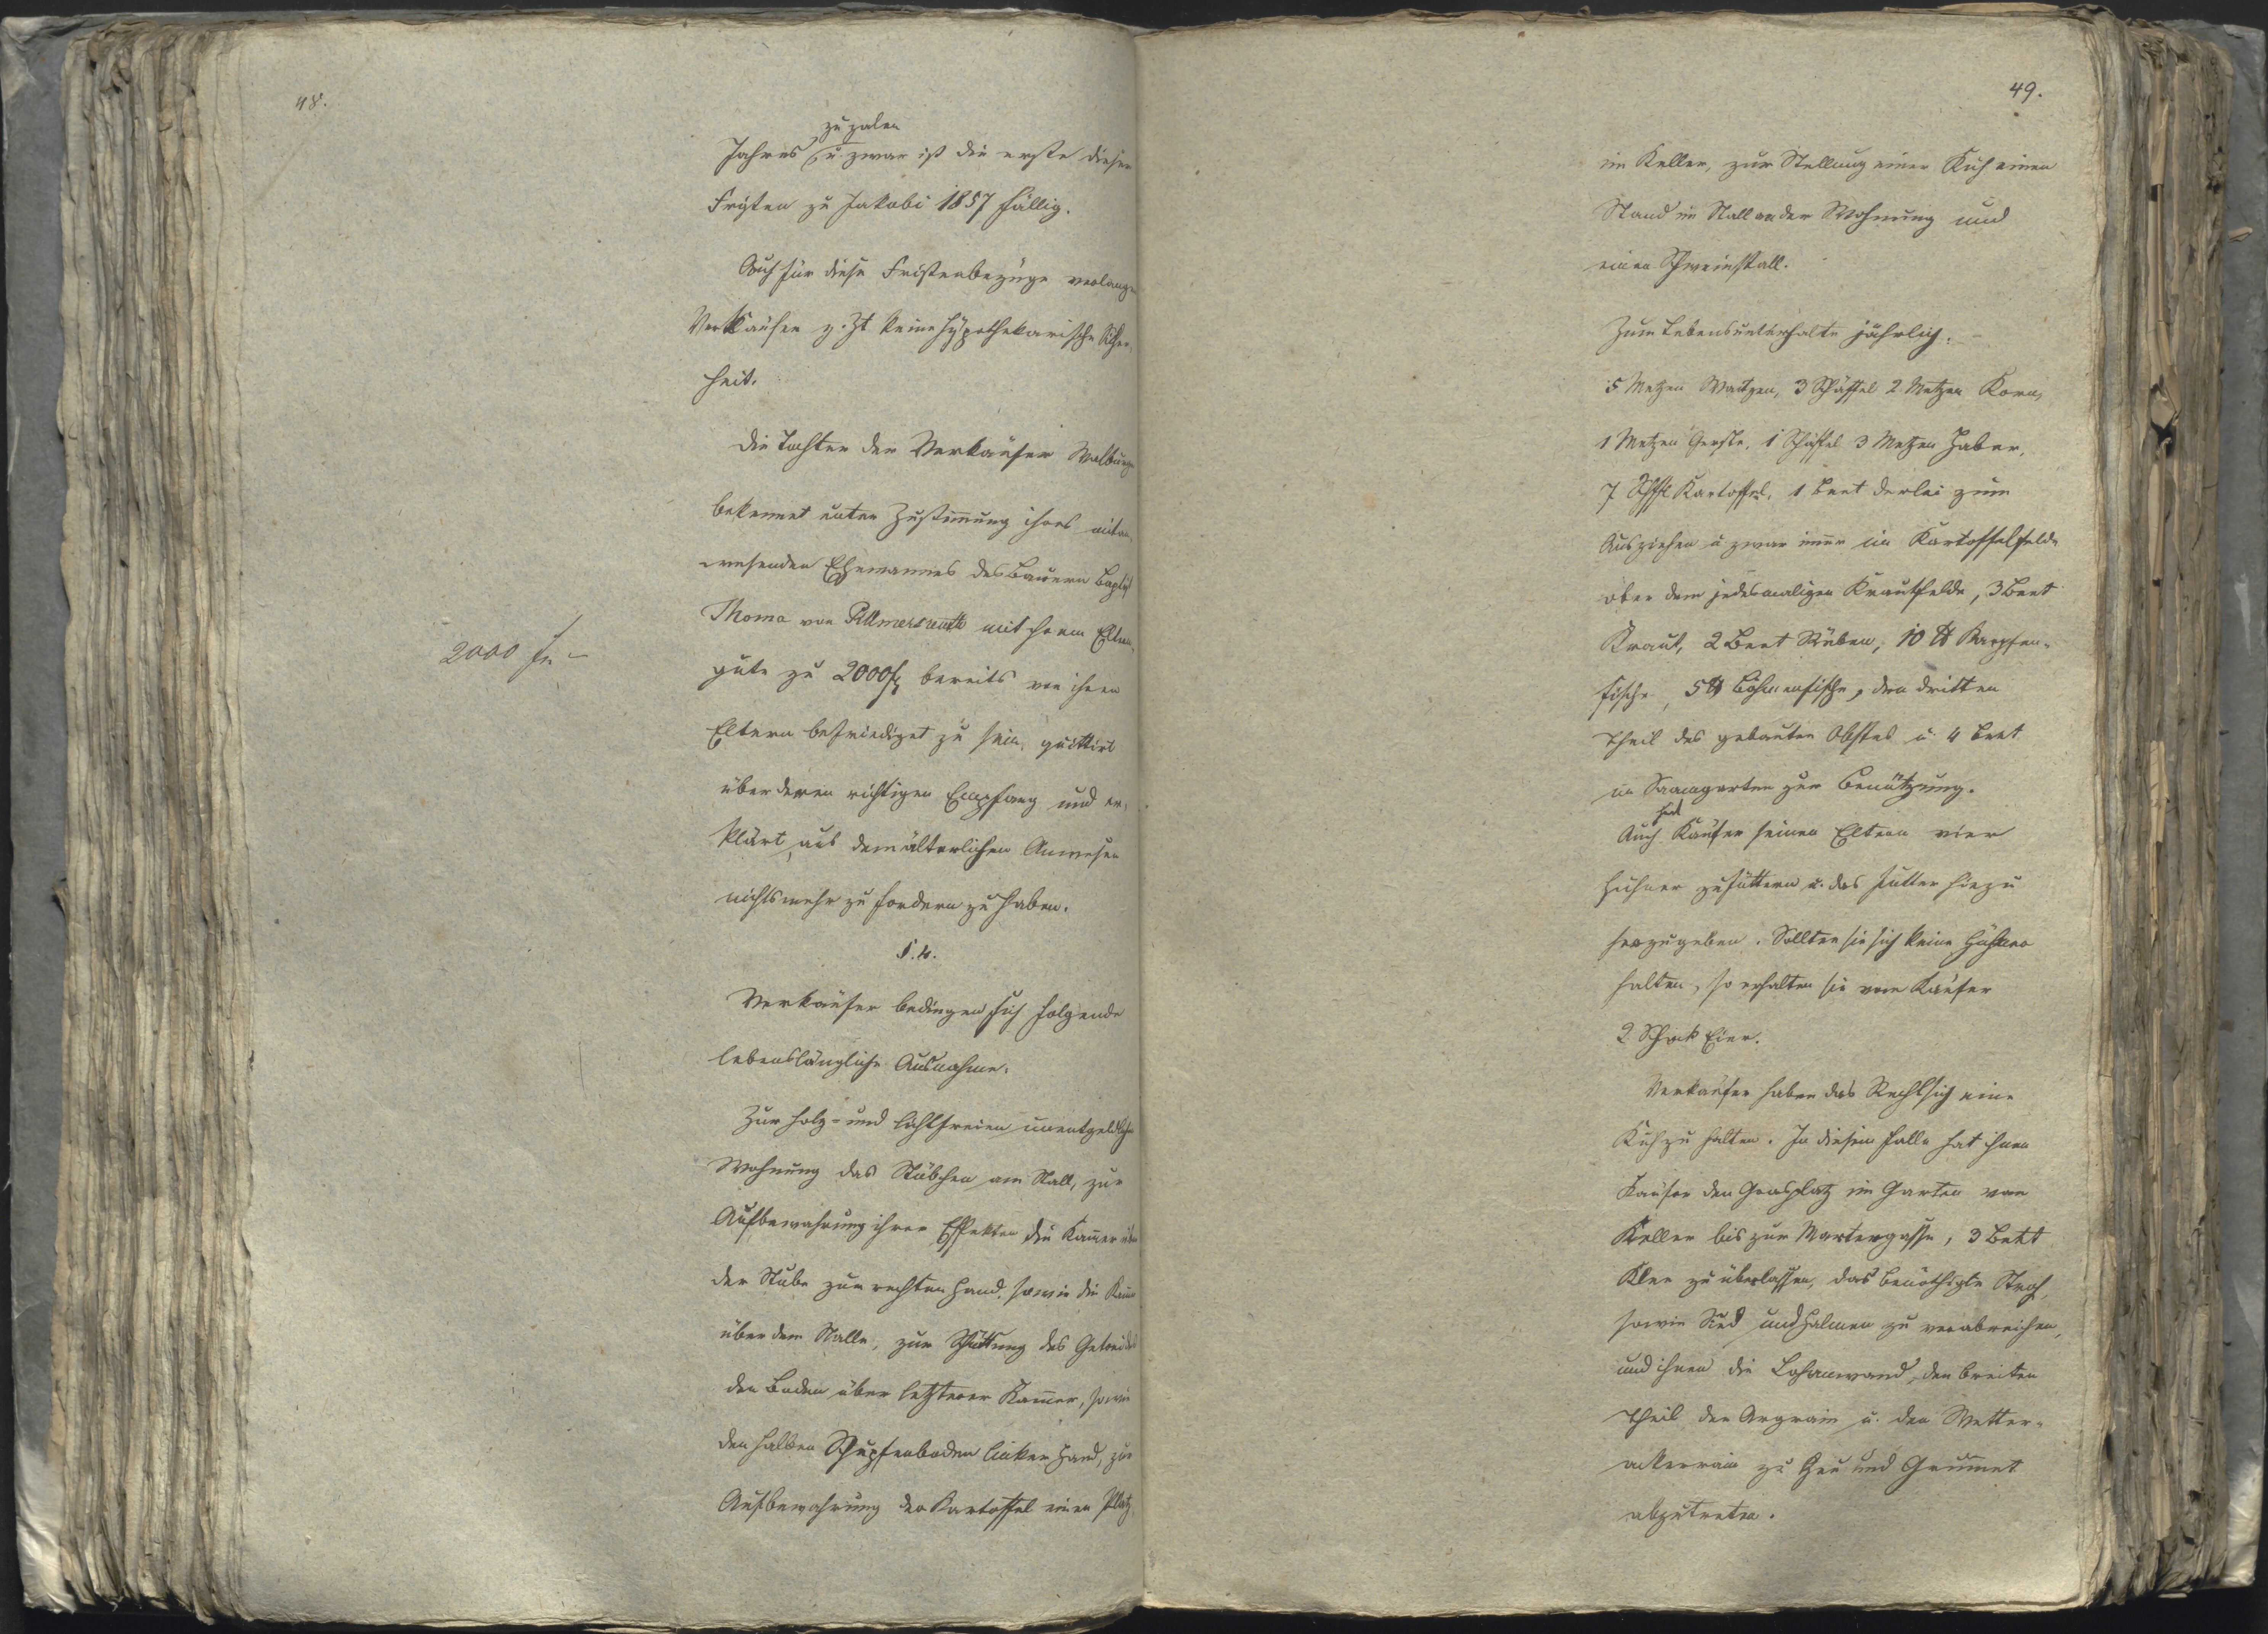 48.
zu zalen
Jahres u. zwar ist die erste dieser
Fristen zu Jakobi 1857 fällig.
Auch für diese Fristenbezüge verlangen
Verkäufer z. Zt keine hypothekarische Sicher-
heit.
Die Tochter der Verkäufer Walburga
bekennt unter Zustimmung ihres mitan-
wesenden Ehemannes des Bauern Baptist
Thoma von mit ihrem Eltern-
2000 fl –
gute zu 2000 fl bereits von ihren
Eltern befriediget zu sein, quittirt
über deren richtigen Empfang und er-
klärt, aus dem älterlichen Anwesen
nichts mehr zu fordern zu haben.
§. 4.
Verkäufer bedingen sich folgende
lebenslängliche Ausnahme:
Zur holz- und lichtfreien unentgeldlichen
Wohnung das Stübchen am Stall, zur
Aufbewahrung ihrer Effekten die Kammer über
der Stube zur rechten Hand, sowie die Kammer
über dem Stalle, zur Schüttung des Getreides
den Boden über letzterer Kammer, sowie
den halben Schupfenboden linker Hand, zur
Aufbewahrung der Kartoffel einen Platz
49.
im Keller, zur Stellung einer Kuh einen
Stand im Stall an der Wohnung und
einen Schweinstall.
Zum Lebensunterhalte jährlich: –
5 Metzen Waitzen, 3 Schäffel 2 Metzen Korn,
1 Metzen Gerste, 1 Schäffel 3 Metzen Haber,
7 Schffl Kartoffel, 1 Beet derlei zum
Ausziehen u. zwar immer im Kartoffelfelde
ober dem jedesmaligen Krautfelde, 3 Beet
Kraut, 2 Beet Rüben, 10 ℔ Karpfen-
fische, 5 ℔ , den dritten
Theil des gebauten Obstes u. 4 Beet
im Saamgarten zur Benützung.
hat
Auch Käufer seinen Eltern vier
Hühner zu füttern u. das Futter hiezu
herzugeben. Sollten sie sich keine Hühner
halten, so erhalten sie vom Käufer
2 Schock Eier.
Verkäufer haben das Recht sich eine
Kuh zu halten. In diesem Falle hat ihnen
Käufer den Grasplatz im Garten vom
Keller bis zur Martergasse, 3 Beet
Klee zu überlassen, das benöthigte Stroh,
sowie Sied und Halmen zu verabreichen,
und ihnen die , den breiten
Theil der u. den Wetter-
ackerrain zu Heu und Grummet
abzutreten.